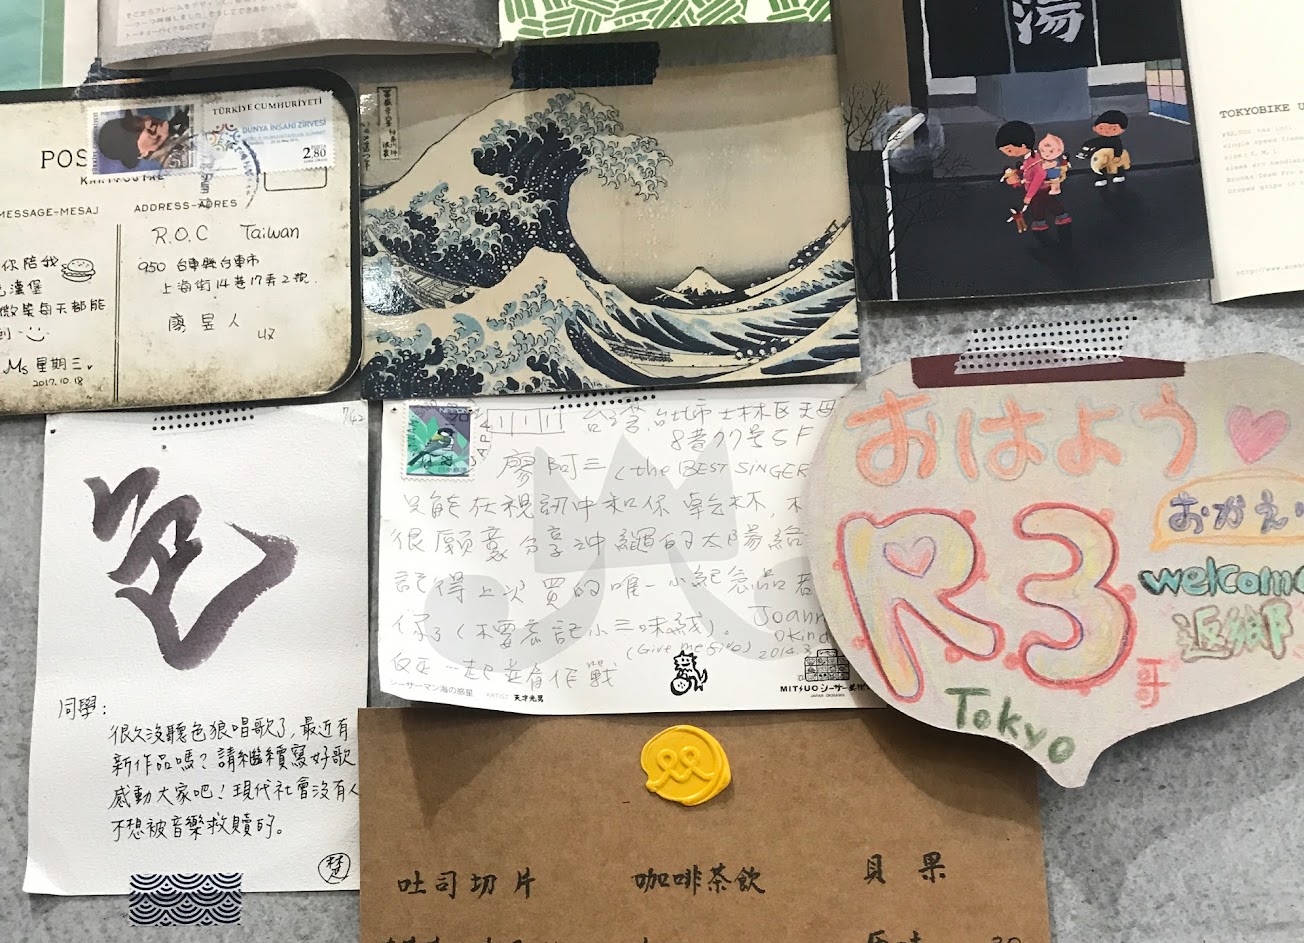 湯
TOKYOBIKE
TÜRKİYE CUMHURİYETİ
DÜNYA İNSANİ ZİRVESİ
2.80
POS
MESSAGE-MESAJ
ADDRESS-ADRES
R.O.C Taiwan
950 台東縣台東市
上海街14巷17弄2號
廖昱人
收
你陪我
漢堡
微笑每天都能
到
Ms 星期三
2017.10.18
色
同學：
很久沒聽色狼唱歌了，最近有
新作品嗎？請繼續寫好歌
感動大家吧！現代社會沒有人
不想被音樂救贖的。
楚
NIPPON
JAPAN
台湾台北市士林区天母
8巷77号5F
廖阿三 (the BEST SINGER
只能在視訊中和你乾杯，不
很願意分享沖繩的太陽給
記得上次買的唯一小紀念品
你了（不要忘記小三味線）. Joann
(Give me five) okind
2014.3
一起青春作戰
シーサーマン海の惑星 ARTIST 天才光男
MITSUO シーサー
JAPAN OKINAWA
おはよう
おかえり
R3
哥
welcome
返鄉
Tokyo
吐司切片 咖啡茶飲 貝果
30